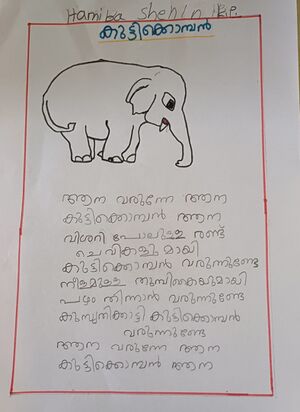 Hamiba Shehin K.P.
കുട്ടിക്കൊമ്പൻ
ആന വരുന്നേ ആന
കുട്ടിക്കൊമ്പൻ ആന
വിശറി പോലുള്ള രണ്ട്
ചെവികളു മായി
കുട്ടിക്കൊമ്പൻ വരുന്നുണ്ടേ
നീളമുള്ള തുമ്പികൈയുമായി
പഴം തിന്നാൻ വരുന്നുണ്ടേ
കുട്ടിക്കൊമ്പൻ
വരുന്നുണ്ടേ
ആന വരുന്നേ ആന
കുട്ടിക്കൊമ്പൻ ആന